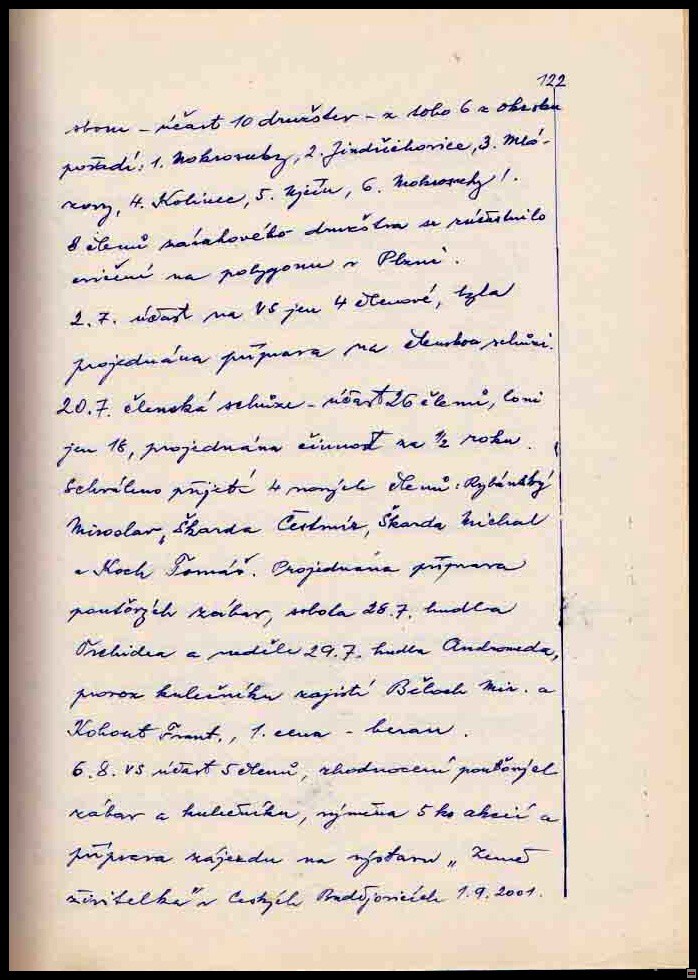 122
sboru - účast 10 družstev - z toho 6 z okrsku
pořadí: 1. Mokrosuky, 2. Jindřichovice, 3. Mlá-
zovy, 4. Kolinec, 5. Ujčín, 6. Mokrosuky!
8 členů zásahového družstva se zúčastnilo
cvičení na polygonu v Plzni.
2.7. účast na VS jen 4 členové, byla
projednána příprava na členskou schůzi.
20.7. členská schůze - účast 26 členů, loni
jen 18, projednána činnost za 1/2 roku.
Schváleno přijetí 4 nových členů: Rybánský
Miroslav, Škarda Čestmír, Škarda Michal
a Koch Tomáš. Projednána příprava
pouťových zábav, sobota 28.7. hudba
Orchidea a neděle 29.7. hudba Andromeda,
provoz kulečníku zajistí Běloch Mir. a
Kohout Frant., 1. cena - beran.
6.8. VS účast 5 členů, zhodnocení pouťových
zábav a kulečníku, výměna 5 ks akcií a
příprava zájezdu na výstavu „Země
živitelka" v Českých Budějovicích 1.9.2001.